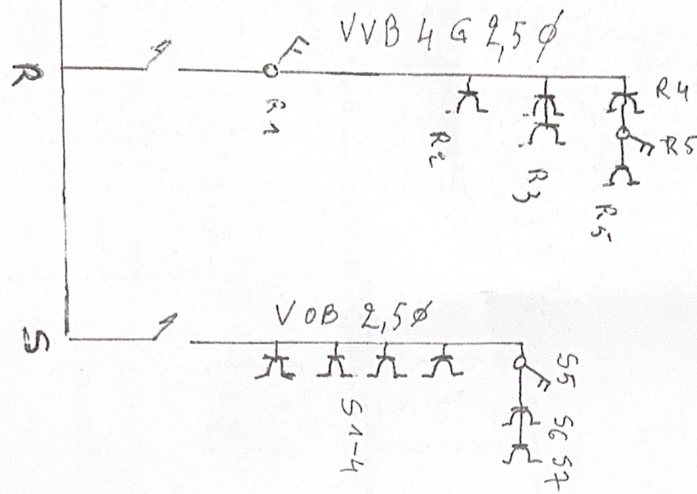 VVB 4 G 2,5 ∅
R
R1
R2
R3
R4
R5
R5
VOB 2,5∅
S
S1-4
S5
S6
S7